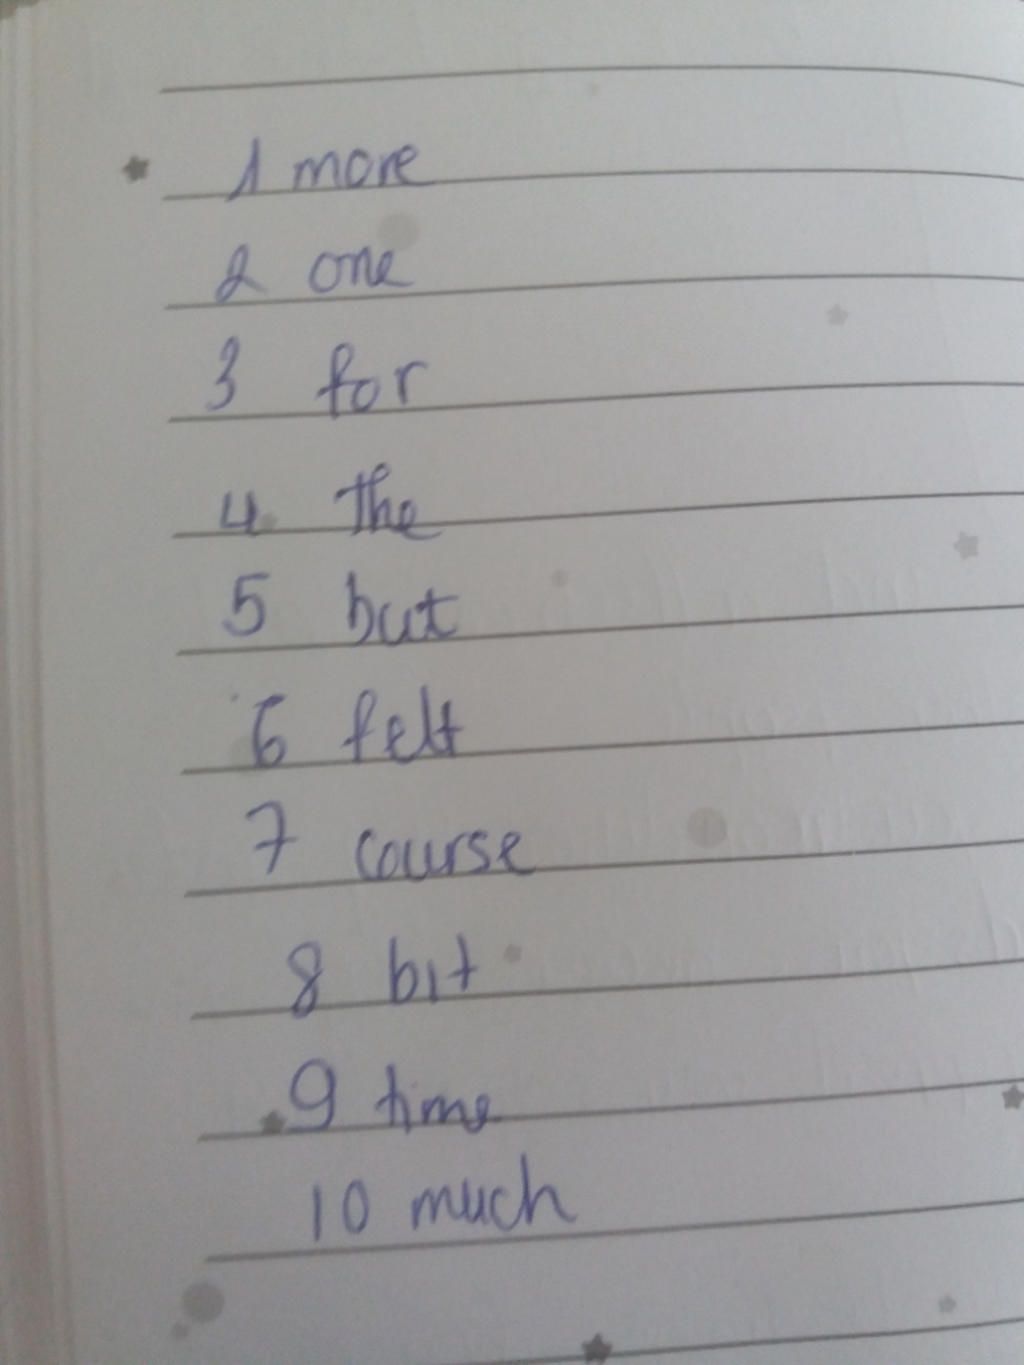 1 more
2 one
3 for
4 the
5 but
6 felt
7 course
8 bit
9 time
10 much